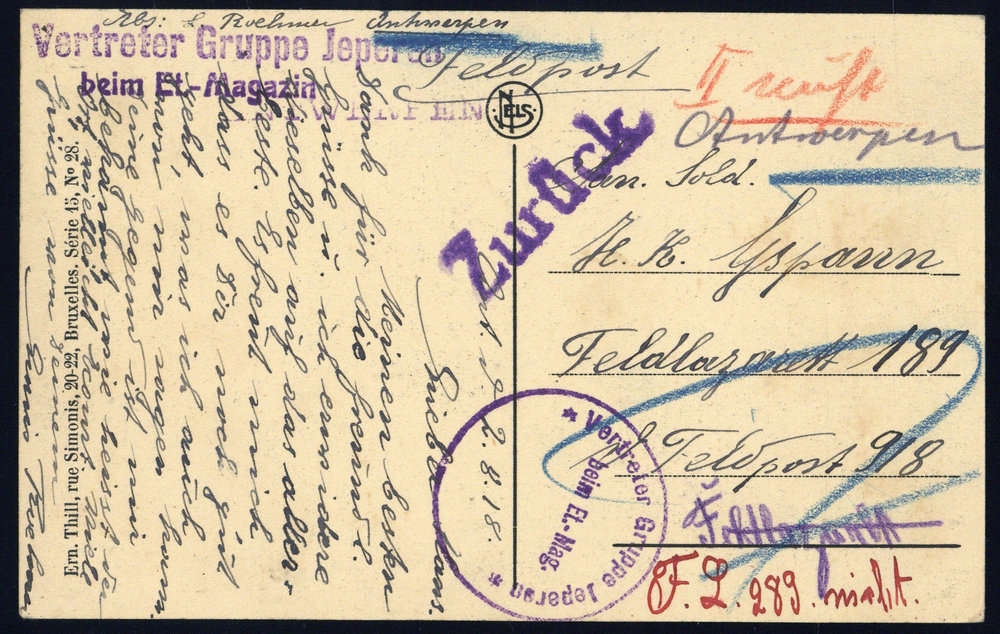 Abs: L Roehmer Antwerpen
Vertreter Gruppe Jeperen
beim Et.-Magazin
ANTWERPEN
Feldpost
II
Antwerpen
NELS
Zurück
San. Sold.
H. K. Gspann
Feldlazarett 189
Feldpost 98
Feldlazarett
F. L. 289. nicht.
* Vertreter Gruppe Jeperen *
beim Et. Mag.
Ant 12. 8. 18.
Lieber Hans.
Meinen besten
Dank für die freundl.
Grüsse u. ich erwidere
dieselben auf das aller-
beste. Es freut mich
dass es Dir noch gut
geht, was ich auch
von mir sagen kann.
eine Gegend ist
bekannt wie heisst
Grüsse von Deinem
Ern. Thill, rue Simonis, 20-22, Bruxelles. Série 15, No 28.